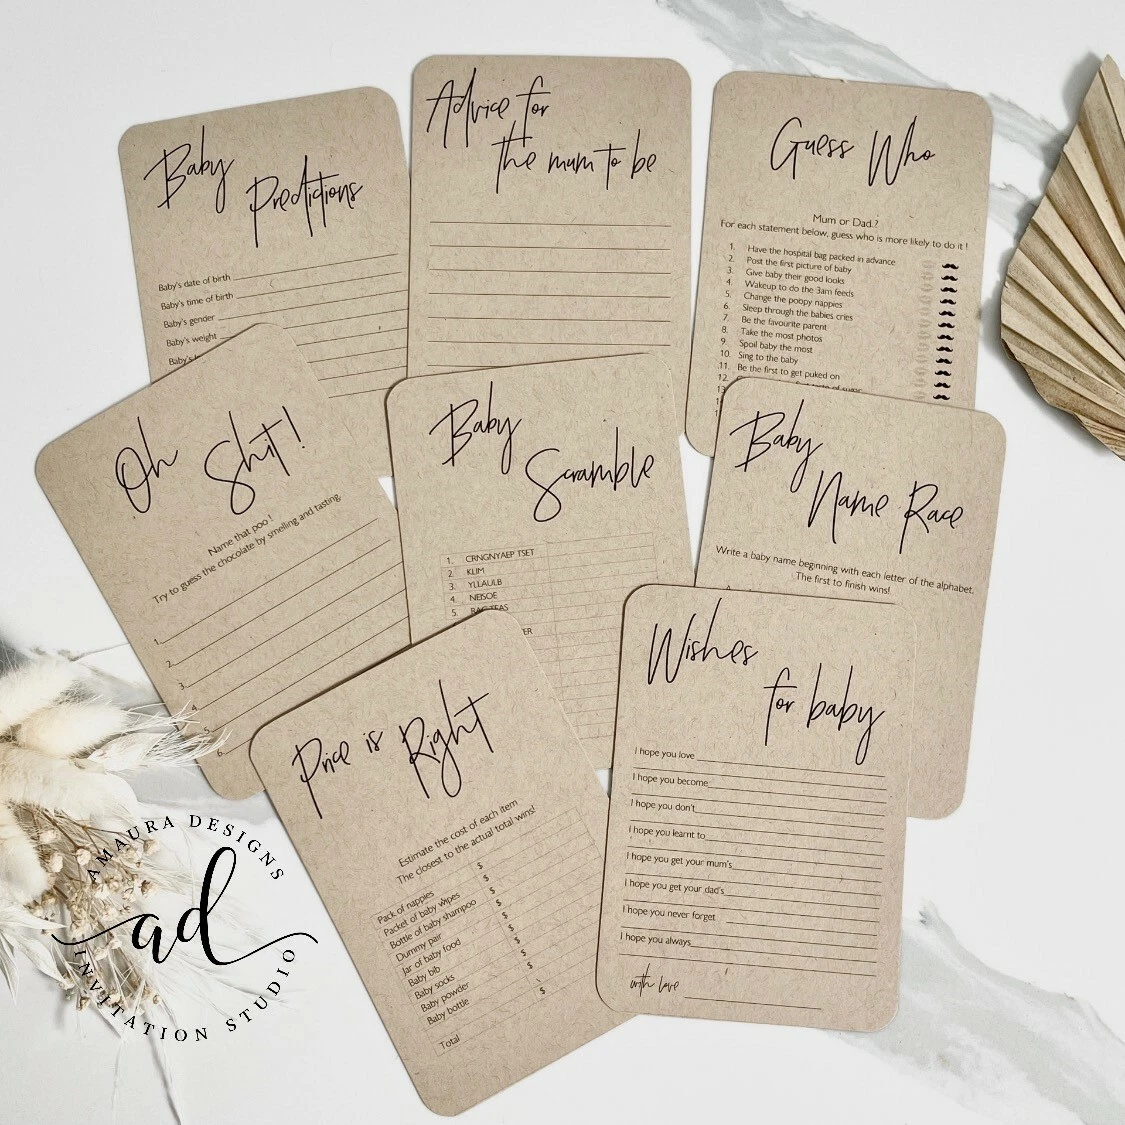 Baby
Predictions
Baby's date of birth
Baby's time of birth
Baby's gender
Baby's weight
Baby's
Advice for
the mum to be
Guess Who
Mum or Dad ?
For each statement below, guess who is more likely to do it !
1. Have the hospital bag packed in advance
2. Post the first picture of baby
3. Give baby their good looks
4. Wakeup to do the 3am feeds
5. Change the poopy nappies
6. Sleep through the babies cries
7. Be the favourite parent
8. Take the most photos
9. Spoil baby the most
10. Sing to the baby
11. Be the first to get puked on
12.
Oh Shit!
Name that poo !
Try to guess the chocolate by smelling and tasting.
1.
2.
3.
4.
5.
6.
Baby
Scramble
1. CRNGNYAEP TSET
2. KLIM
3. YLLAULB
4. NEISOE
5. BAG TEAS
ER
Baby
Name Race
Write a baby name beginning with each letter of the alphabet.
The first to finish wins!
Price is Right
Estimate the cost of each item
The closest to the actual total wins!
Pack of nappies $
Packet of baby wipes $
Bottle of baby shampoo $
Dummy pair $
Jar of baby food $
Baby bib $
Baby socks $
Baby powder $
Baby bottle $
Total
Wishes
for baby
I hope you love
I hope you become
I hope you don't
I hope you learnt to
I hope you get your mum's
I hope you get your dad's
I hope you never forget
I hope you always
with love
AMAURA DESIGNS
ad
INVITATION STUDIO